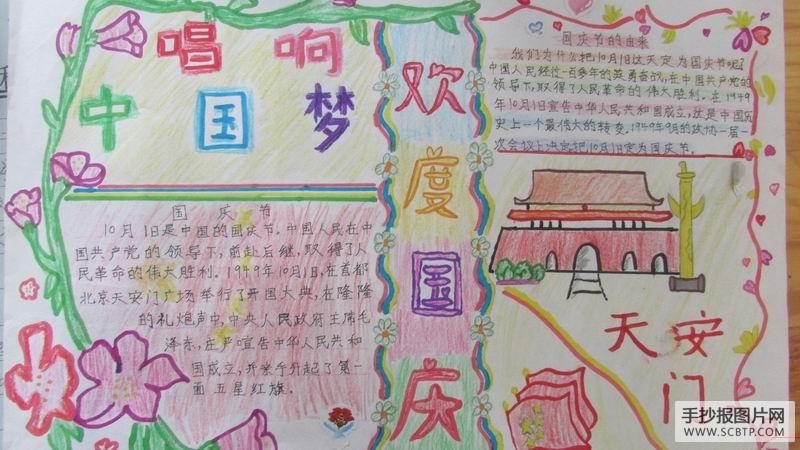 唱响
中国梦
国庆节
10月1日是中国的国庆节。中国人民在中
国共产党的领导下,前赴后继,取得了人
民革命的伟大胜利。1949年10月1日,在首都
北京天安门广场举行了开国大典,在隆隆
的礼炮声中,中央人民政府主席毛
泽东,庄严宣告中华人民共和
国成立,并亲手升起了第一
面五星红旗。
欢
度
国
庆
国庆节的由来
我们为什么把10月1日这天定为国庆节呢?
中国人民经过一百多年的英勇奋战,在中国共产党的
领导下,取得了人民革命的伟大胜利。在1949
年10月1日宣告中华人民共和国成立,这是中国历
史上一个最伟大的转变。1949年9月的政协一届一
次会议上决定把10月1日定为国庆节。
天安
门
手抄报图片网
WWW.SCBTP.COM